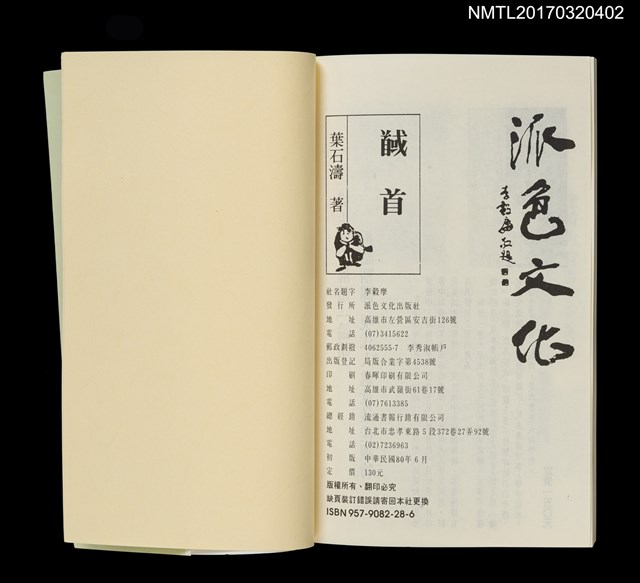 NMTL20170320402
派色文化
馘首
葉石濤 著
社名題字 李毅摩
發行所 派色文化出版社
地址 高雄市左營區安吉街126號
電話 (07)3415622
郵政劃撥 4062555-7 李秀淑帳戶
出版登記 局版台業字第4538號
印刷 春暉印刷有限公司
地址 高雄市武嶺街61巷17號
電話 (07)7613385
總經銷 流通書報行銷有限公司
地址 台北市忠孝東路5段372巷27弄92號
電話 (02)7236963
初版 中華民國80年6月
定價 130元
版權所有、翻印必究
缺頁裝訂錯誤請寄回本社更換
ISBN 957-9082-28-6